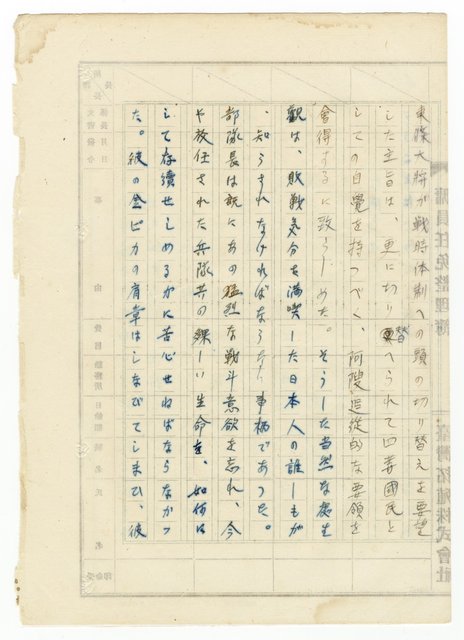 東條大将が戦時体制への頭の切り替えを要望
した主旨は、更に切り替へられて四等國民と
しての自覚を持つべく、阿諛追従的な要領を
會得するに致らしめた。そうした当然な処生
観は、敗戦気分を満喫した日本人の誰しもが
、知らされなければならない事柄であつた。
部隊長は既にあの猛烈な戦斗意欲を忘れ、今
や放任された兵隊共の儚い生命を、如何に
して存續せしめるかに苦心せねばならなかつ
た。彼の金ピカの肩章はしなびてしまひ、彼
傭員任免整理簿
臺灣拓殖株式會社